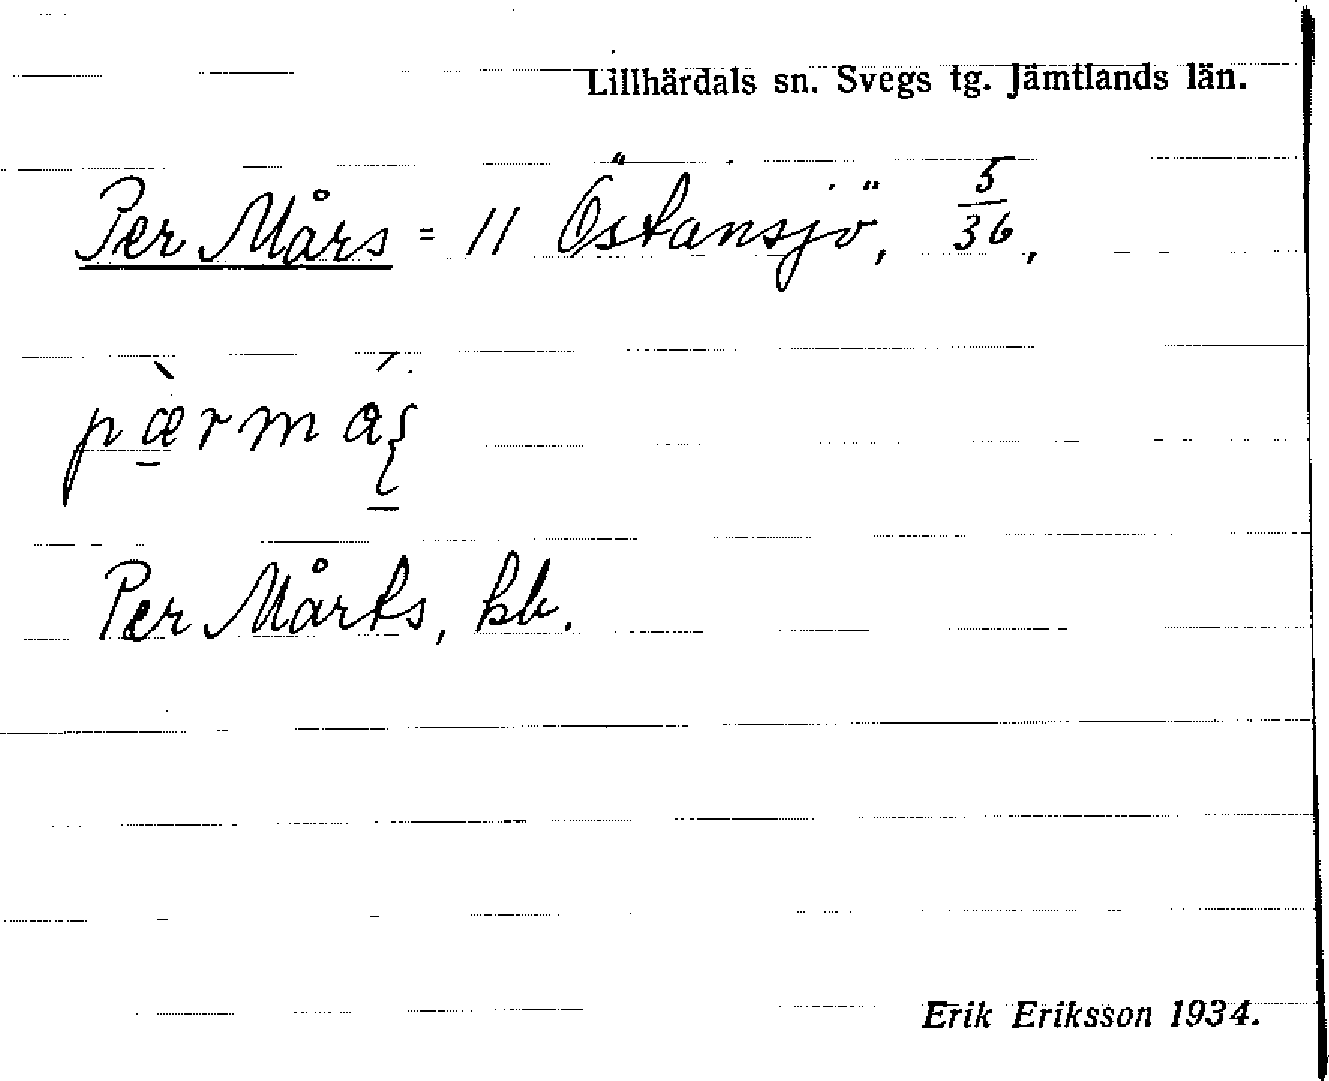 Lillhärdals sn. Svegs tg. Jämtlands län.
Per Mårs = 11 Östansjö, 5/36,
Per Mårts, kb.
Erik Eriksson 1934.